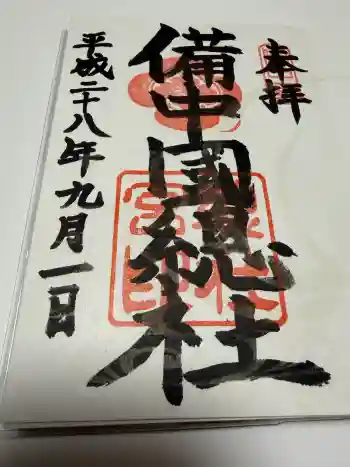 奉拝
備中國總社
平成二十八年九月一日